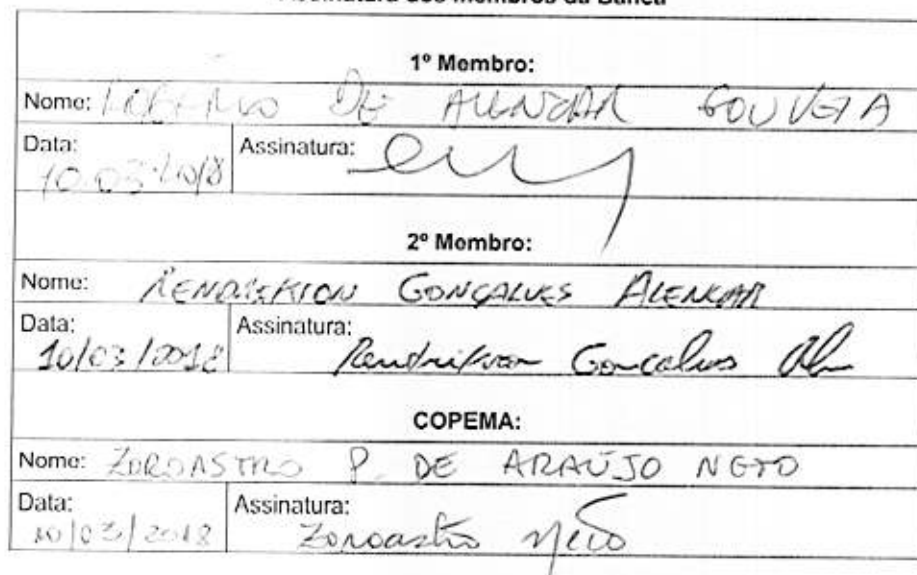 Assinatura dos Membros da Banca
1º Membro:
Nome: DE ALENCAR GOUVEIA
Data: 10.03.2018 Assinatura:
2º Membro:
Nome: GONÇALVES ALENCAR
Data: 10/03/2018 Assinatura: Gonçalves
COPEMA:
Nome: ZOROASTRO P. DE ARAÚJO NETO
Data: 10/03/2018 Assinatura: Zoroastro Neto